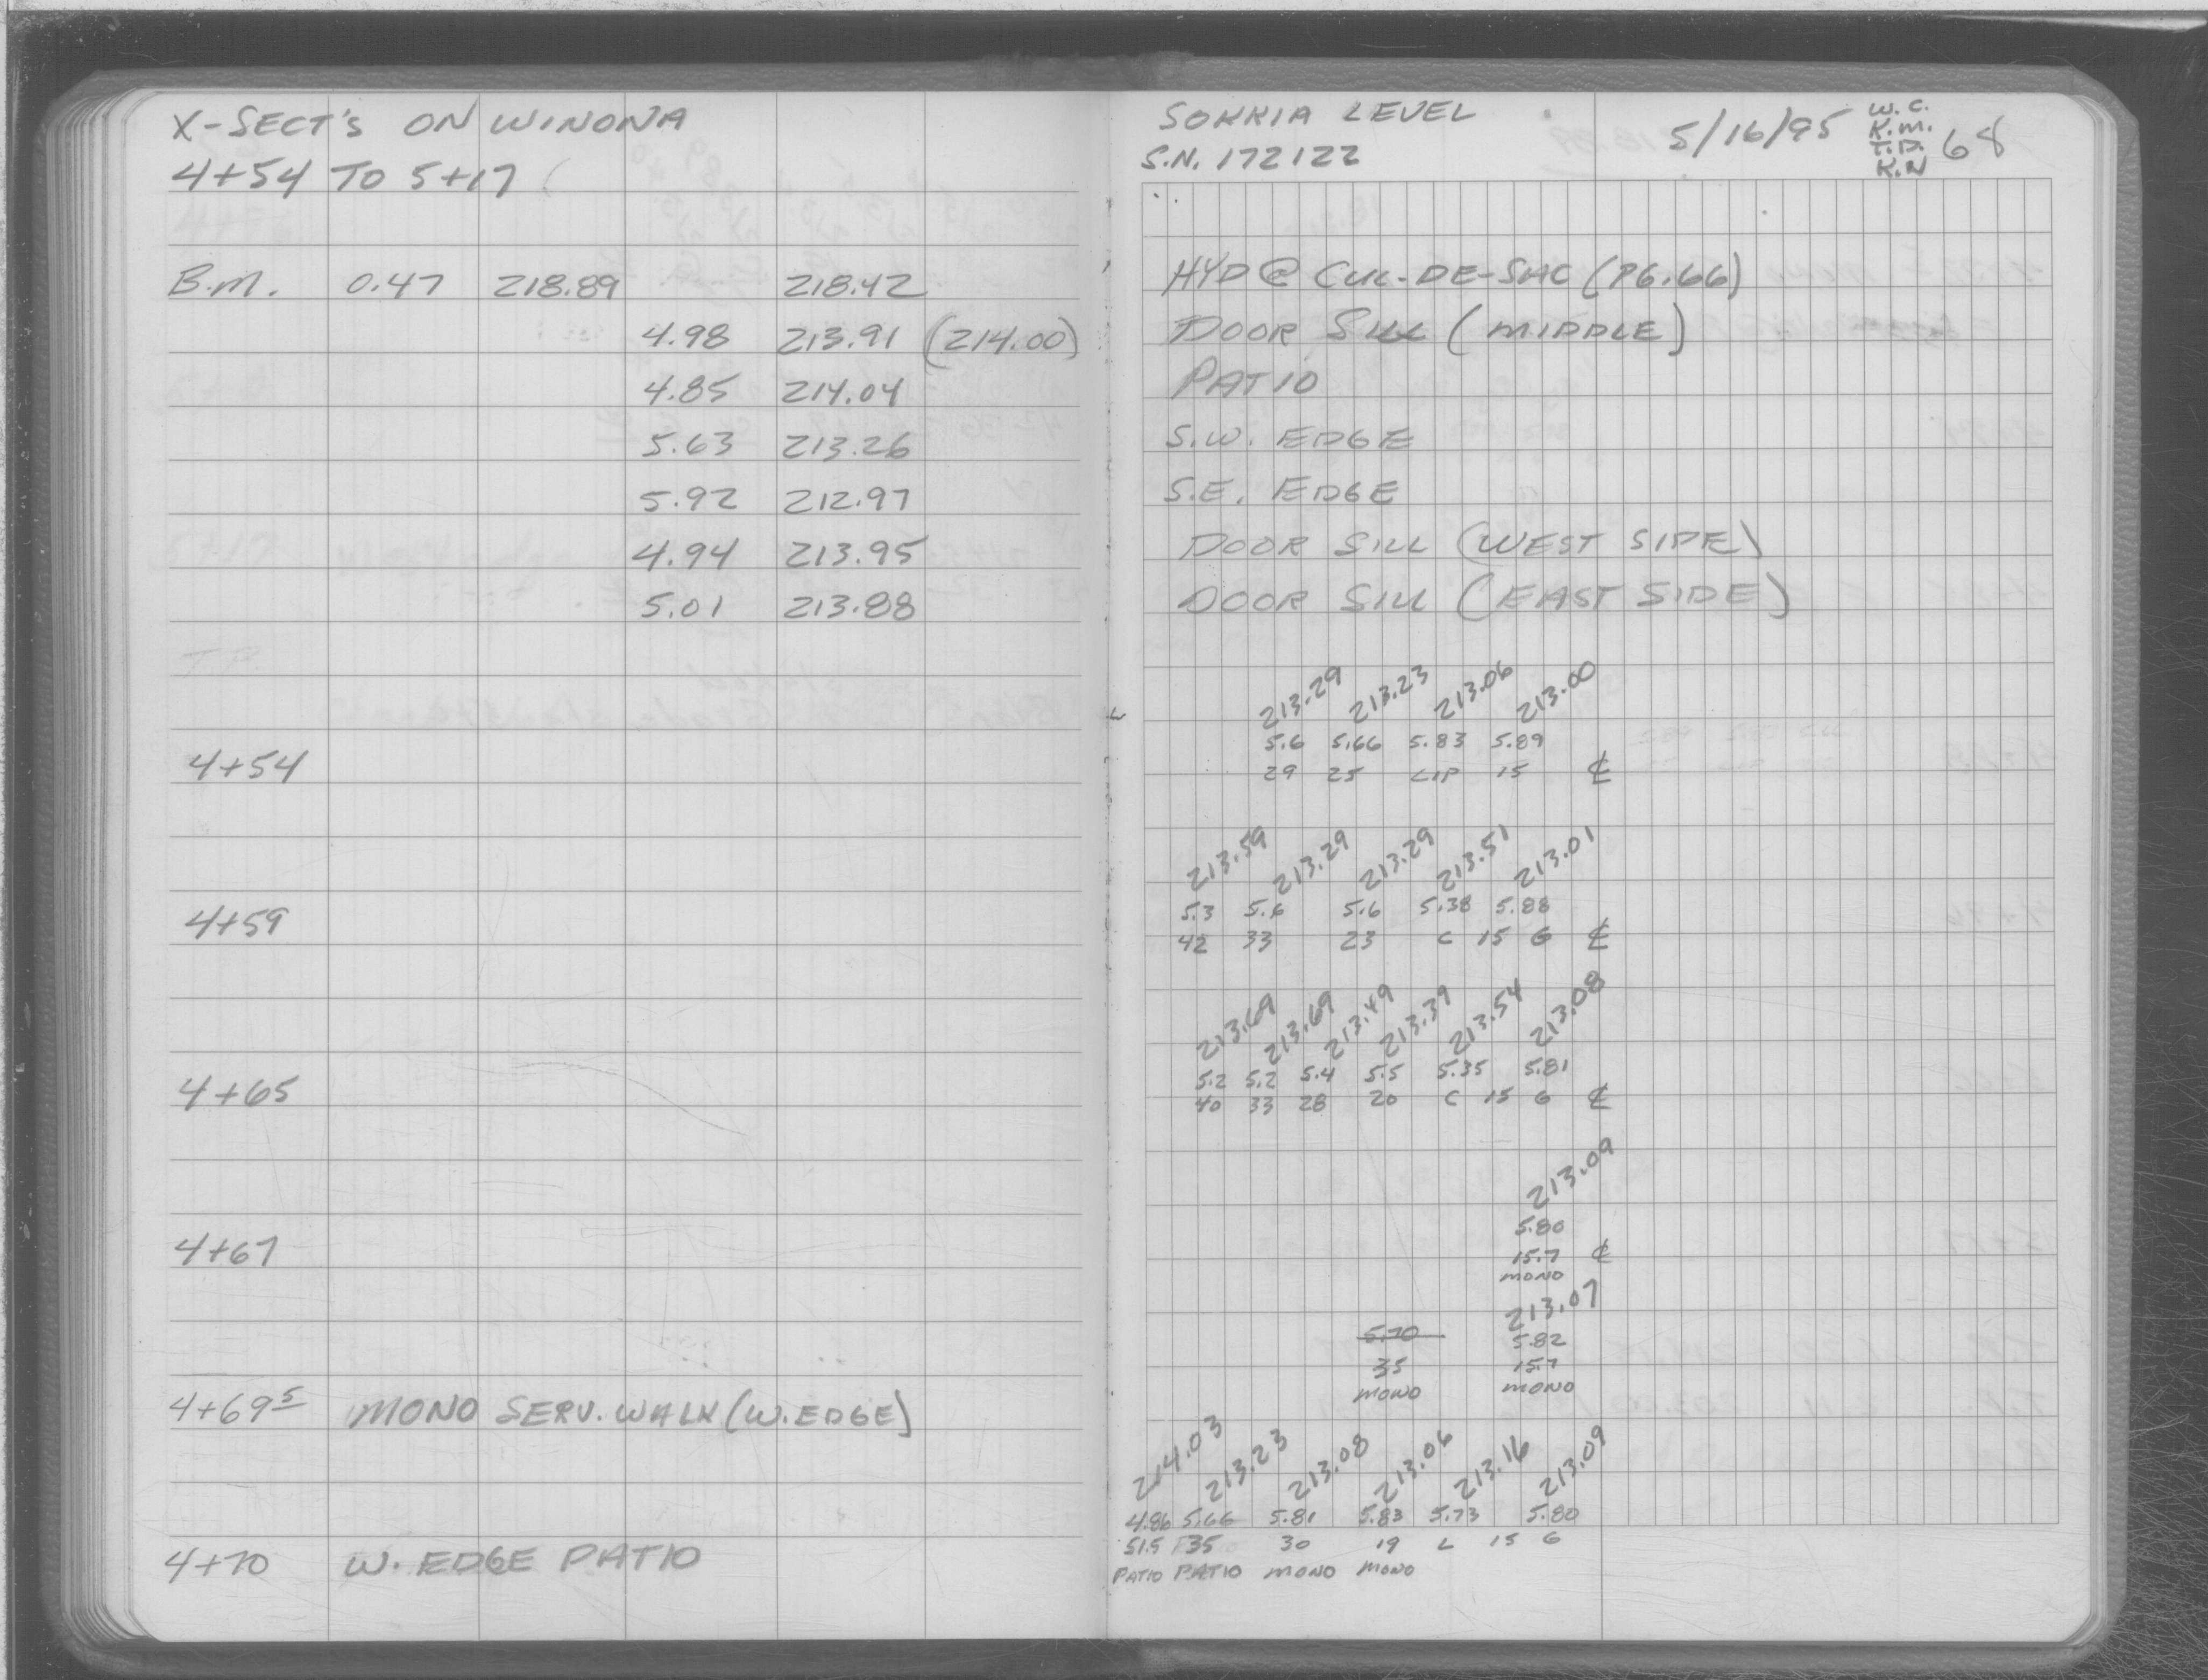 X-SECT'S ON WINONA
4+54 TO 5+17
B.M. 0.47 218.89 218.42
4.98 213.91 (214.00)
4.85 214.04
5.63 213.26
5.92 212.97
4.94 213.95
5.01 213.88
4+54
4+59
4+65
4+67
4+69⁵ MONO SERV. WALK (W. EDGE)
4+70 W. EDGE PATIO
SOKKIA LEVEL
S.N. 172122
5/16/95
W.C.
K.M.
T.D.
K.N
68
HYD @ CUL-DE-SAC (PG.66)
DOOR SILL (MIDDLE)
PATIO
S.W. EDGE
S.E. EDGE
DOOR SILL (WEST SIDE)
DOOR SILL (EAST SIDE)
213.29 213.23 213.06 213.00
5.6 5.66 5.83 5.89
29 25 LIP 15 ℄
213.59 213.29 213.29 213.51 213.01
5.3 5.6 5.6 5.38 5.88
42 33 23 C 15 G ℄
213.69 213.69 213.49 213.39 213.54 213.08
5.2 5.2 5.4 5.5 5.35 5.81
40 33 28 20 C 15 G ℄
213.09
5.80
15.7 ℄
MONO
213.07
5.70 5.82
35 15.7
MONO MONO
214.03 213.23 213.08 213.06 213.16 213.09
4.86 5.66 5.81 5.83 5.73 5.80
51.5 35 30 19 L 15 G
PATIO PATIO MONO MONO